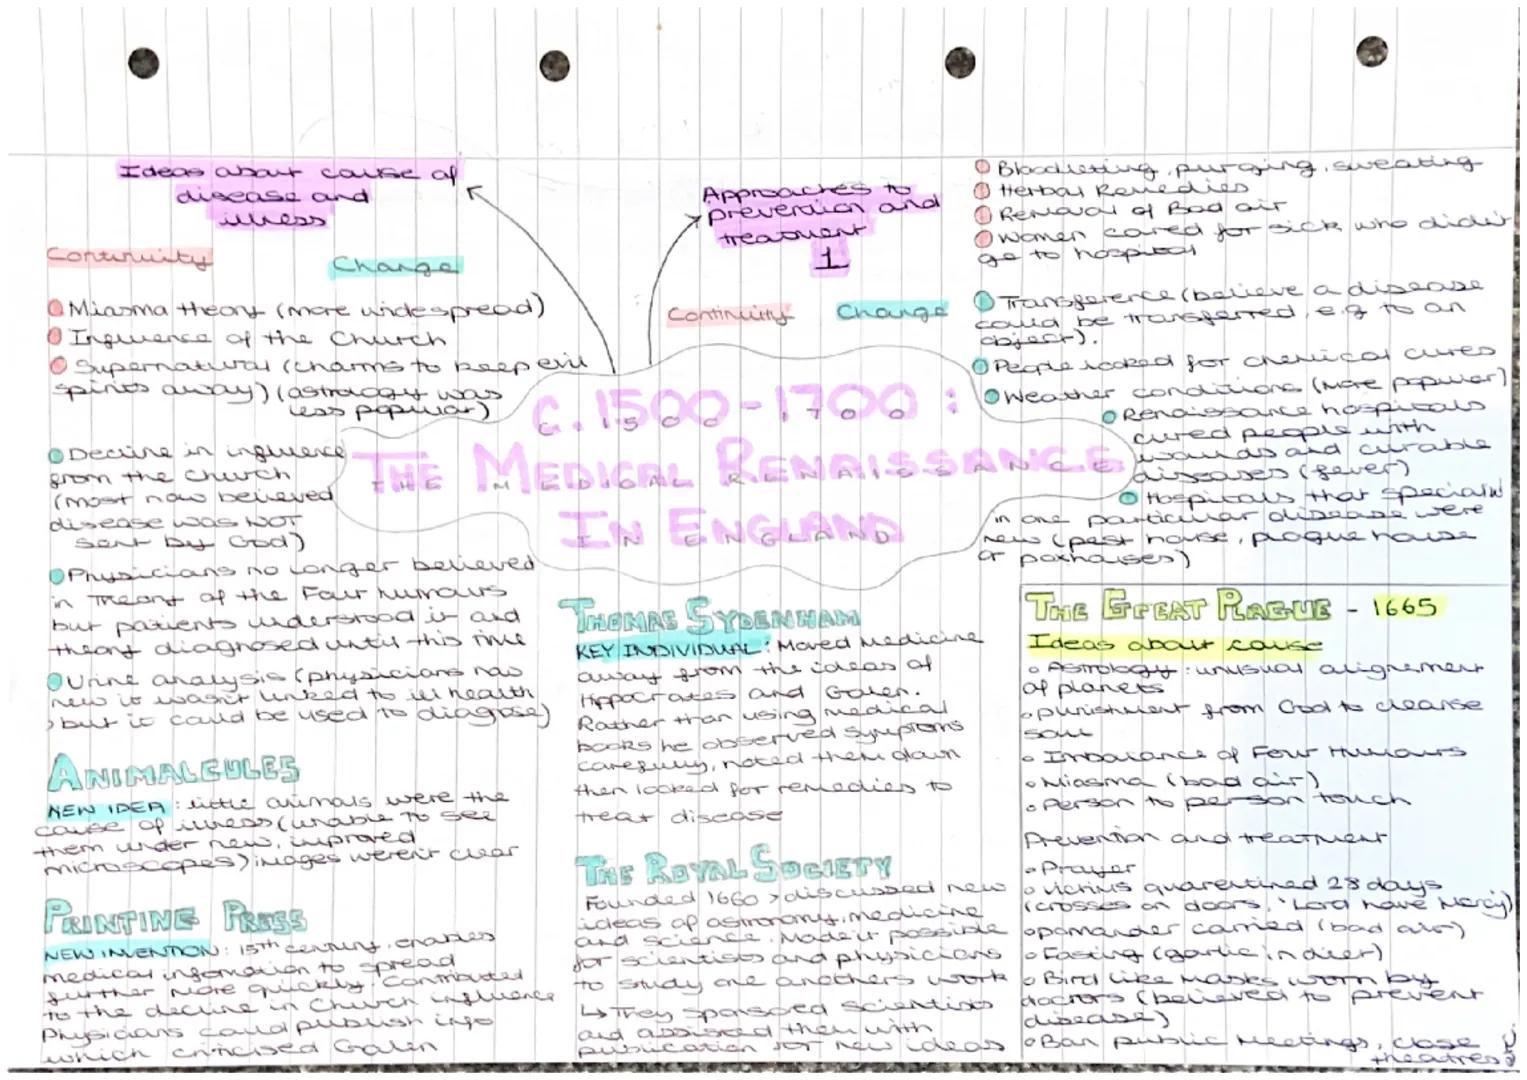 Ideas about cause of
disease and
illness
Continuity
Change
Miasma theory (more widespread)
Influence of the Church
Supernatural (charms to keep evil
spirits away) (astrology was
less popular)
Decline in influence
from the church
(most now believed
disease was NOT
sent by God)
Physicians no longer believed
in Theory of the Four Humours
but patients understood it and
theory diagnosed until this time
Urine analysis (physicians now
new it wasn't linked to ill health
, but it could be used to diagnose)
ANIMALCULES
NEW IDEA : little animals were the
cause of illness (unable to see
them under new, improved
microscopes) images weren't clear
PRINTINE PRESS
NEW INVENTION : 15th century, enables
medical infomation to spread
further more quickly. Contributed
to the decline in Church influence
Physicians could publish info
which criticised Galen
Approaches to
prevention and
treatment
1
Continuity
Change
c. 1500 - 1700 :
THE MEDICAL RENAISSANCE
IN ENGLAND
THOMAS SYDENHAM
KEY INDIVIDUAL : Moved medicine
away from the ideas of
Hippocrates and Galen.
Rather than using medical
books he observed symptoms
carefully, noted them down
then looked for remedies to
treat disease
THE ROYAL SOCIETY
Founded 1660 > discussed new
ideas of astronomy, medicine
and science. Made it possible
for scientists and physicians
to study one anothers work
↳ They sponsored scientists
and assisted them with
publication for new ideas
Bloodletting, purging, sweating
Herbal Remedies
Removal of Bad air
Women cared for sick who didn't
go to hospital
Transference (believe a disease
could be transferred, e.g to an
object).
People looked for chemical cures
Weather conditions (more popular)
Renaissance hospitals
cured people with
wounds and curable
diseases (fever)
Hospitals that specialise
in one particular disease were
new (pest house, plague house
or poxhouses)
THE GREAT PLAGUE - 1665
Ideas about cause
Astrology : unusual alignement
of planets
punishment from God to cleanse
soul
Imbalance of Four Humours
Miasma (bad air)
person to person touch
Prevention and treatment
Prayer
victims quarentined 28 days
(crosses on doors, 'Lord have Mercy)
pomander carried (bad air)
Fasting (garlic in diet)
Bird like masks worn by
doctors (believed to prevent
disease)
Ban public meetings, close
theatres